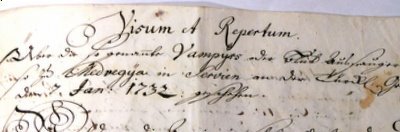 Visum et Repertum.
Über die so genannte Vampyrs oder Blut Aussauger,
so zu Medvegya in Servien an der
den 7 Jan: 1732. geschehen.